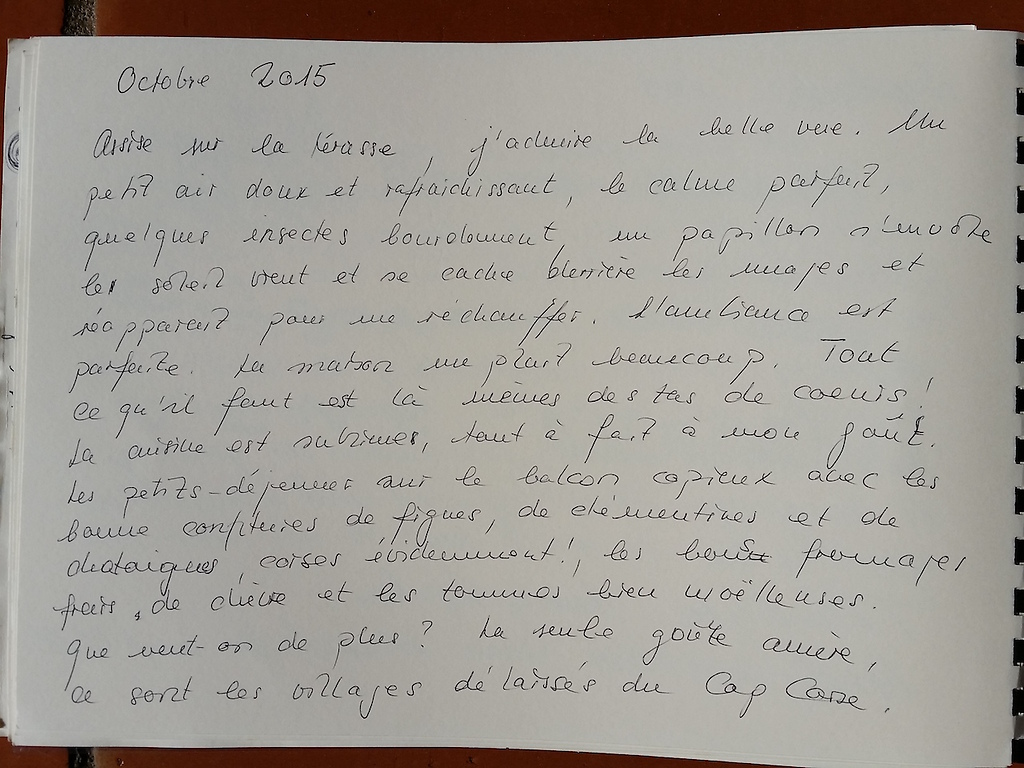 Octobre 2015
Assise sur la térasse, j'admire la belle vue. Un
petit air doux et rafraichissant, le calme parfait,
quelques insectes bourdonnent, un papillon s'envole
les soleil vient et se cache derrière les nuages et
réapparait pour me réchauffer. L'ambiance est
parfaite. La maison me plait beaucoup. Tout
ce qu'il faut est là mêmes des tas de
La cuisine est sublimes, tout à fait à mon goût.
Les petits-déjeuner sur le balcon copieux avec les
bonne confitures de figues, de clémentines et de
chataignes, corses évidemment!, les bons fromages
frais, de chèvre et les tommes bien moëlleuses.
Que veut-on de plus? La seule goûte amère,
ce sont les villages délaissés du Cap Corse.